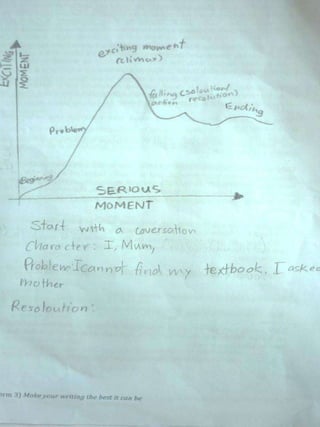 EXCITING
MOMENT
exciting moment
(climax)
falling (soloution/
action resolution)
Ending
Problem
Beginning
SERIOUS
MOMENT
Start with a coversation
Character: I, Mum,
Problem: I cannot find my textbook, I asked
mother
Resoloution:
erm 3) Make your writing the best it can be